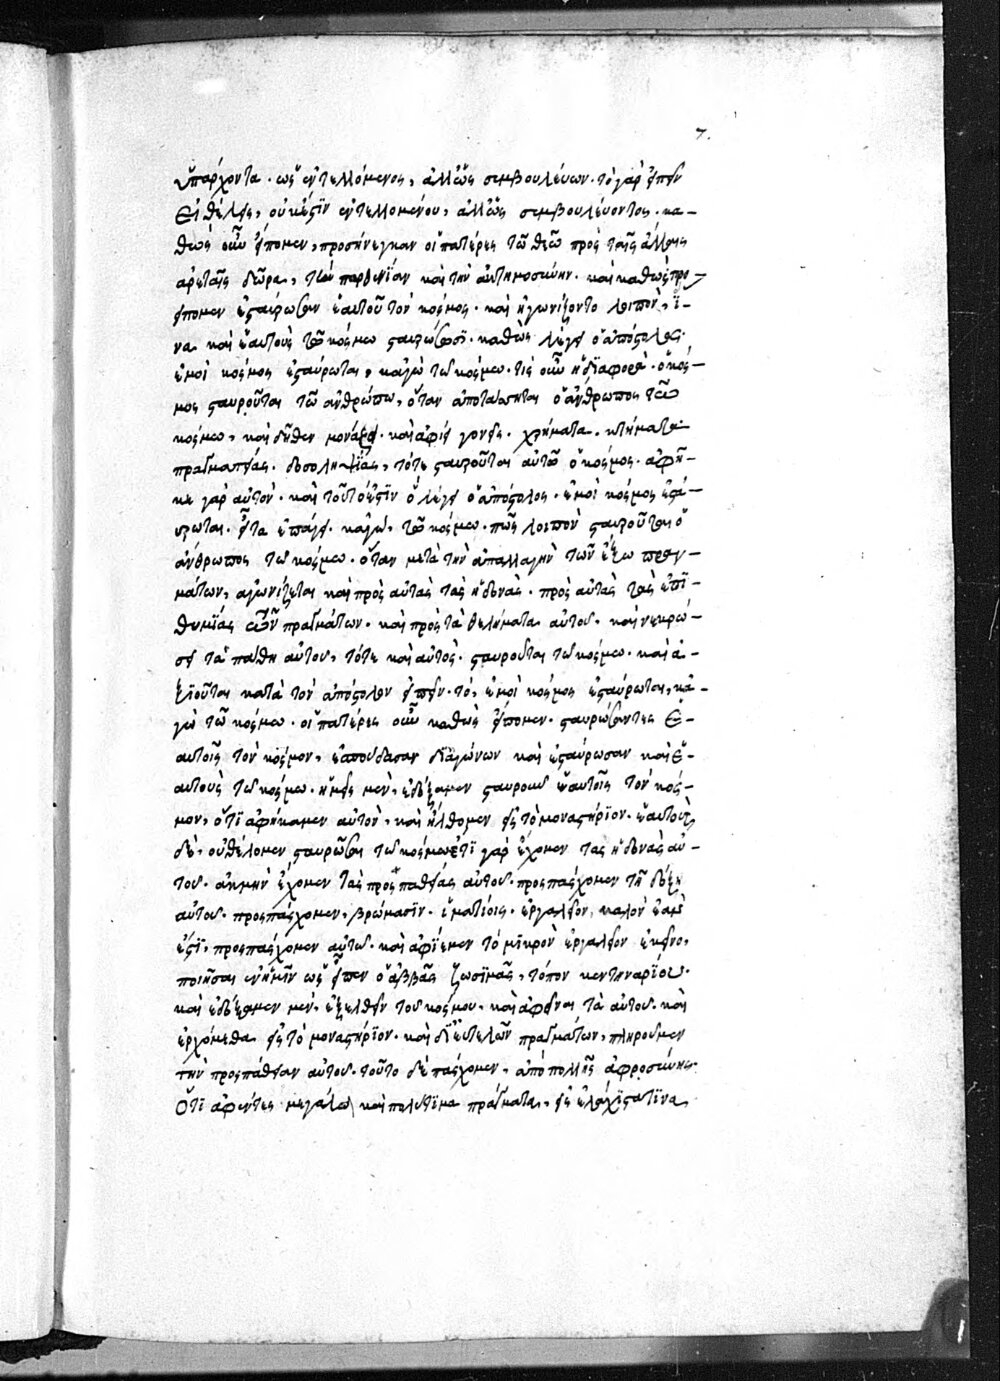 7.
ὑπάρχοντα. ὡς ἐντελλόμενος, ἀλλ' ὡς συμβουλεύων. τὸ γὰρ εἰπεῖν
Εἰ θέλεις, οὐκ ἐστὶν ἐντελλομένου, ἀλλ' ὡς συμβουλεύοντος. κα-
θὼς οὖν εἴπομεν, προσήνεγκαν οἱ πατέρες τῶ θεῶ πρὸς ταῖς ἄλλαις
ἀρεταῖς δῶρα, τὴν παρθενίαν καὶ τὴν ἀκτημοσύνην. καὶ καθὼς προ-
είπομεν ἐσταύρωσαν ἑαυτοῦ τὸν κόσμος. καὶ ἠγωνίζοντο λοιπὸν, ἵ-
να καὶ ἑαυτοὺς τῶ κόσμω σταυρώσωσι. καθὼς λέγει ὁ ἀπόστολος.
ἐμοὶ κόσμος ἐσταύρωται, καγὼ τῶ κόσμω. τίς οὖν ἡ διαφορὰ. ὁ κόσ-
μος σταυροῦται τῶ ἀνθρώπω, ὅταν ἀποτάσσηται ὁ ἄνθρωπος τῶ
κόσμω, καὶ δῆθεν μονάζει. καὶ ἀφίει γονεῖς. χρήματα. κτήματα
πραγματείας. δοσοληψίας, τότε σταυροῦται αὐτῶ ὁ κόσμος. ἀφῆ-
κε γὰρ αὐτόν. καὶ τοῦτό ἐστιν ὃ λέγει ὁ ἀπόστολος. ἐμοὶ κόσμος ἐστά-
υρωται. εἶτα ἐπάγει. καγὼ, τῶ κόσμω. πῶς λοιπὸν σταυροῦται ὁ
ἄνθρωπος τῶ κόσμω. ὅταν μετὰ τὴν ἀπαλλαγὴν τῶν ἔξω πραγ-
μάτων, ἀγωνίζεται καὶ πρὸς αὐτὰς τὰς ἡδονάς. πρὸς αὐτὰς τὰς ἐπι-
θυμίας τῶν πραγμάτων. καὶ πρὸς τὰ θελήματα αὐτοῦ. καὶ νεκρώ-
σει τὰ πάθη αὐτοῦ, τότε καὶ αὐτὸς. σταυροῦται τῶ κόσμω. καὶ ἀ-
ξιοῦται κατὰ τὸν ἀπόστολον εἰπεῖν. τό, ἐμοὶ κόσμος ἐσταύρωται, κα-
γὼ τῶ κόσμω. οἱ πατέρες οὖν καθὼς εἴπομεν. σταυρώσαντες ἑ-
αυτοῖς τὸν κόσμον, ἐσπούδασαν δι' ἀγώνων καὶ ἐσταύρωσαν καὶ ἑ-
αυτοὺς τῶ κόσμω. ἡμεῖς μὲν, ἐδόξαμεν σταυροῦν ἑαυτοῖς τὸν κόσ-
μον, ὅτι ἀφήκαμεν αὐτὸν, καὶ ἤλθομεν εἰς τὸ μοναστήριον. ἑαυτοὺς
δὲ, οὐ θέλομεν σταυρῶσαι τῶ κόσμω ἔτι γὰρ ἔχομεν τὰς ἡδονὰς αὐ-
τοῦ. ἀκμὴν ἔχομεν τὰς προσπαθείας αὐτοῦ. προσπάσχομεν τῆ δόξη
αὐτοῦ. προσπάσχομεν, βρώμασιν. ἱματίοις. ἐργαλεῖον, καλὸν ἐὰν
ἐστι, προσπάσχομεν αὐτῶ. καὶ ἀφίεμεν τὸ μικρὸν ἐργαλεῖον ἐκεῖνο,
ποιῆσαι ἐν ἡμῖν ὡς εἶπεν ὁ ἀββᾶς ζωσιμᾶς, τόπον κεντηναρίου.
καὶ ἐδόξαμεν μὲν, ἐξελθεῖν τοῦ κόσμου. καὶ ἀφεῖναι τὰ αὐτοῦ. καὶ
ἐρχόμεθα εἰς τὸ μοναστήριον. καὶ δι' εὐτελῶν πραγμάτων, πληροῦμεν
τὴν προσπάθειαν αὐτοῦ. τοῦτο δὲ πάσχομεν, ἀπὸ πολλῆς ἀφροσύνης.
Ὅτι ἀφέντες μεγάλα καὶ πολύτιμα πράγματα, εἰς ἐλάχιστά τινα.